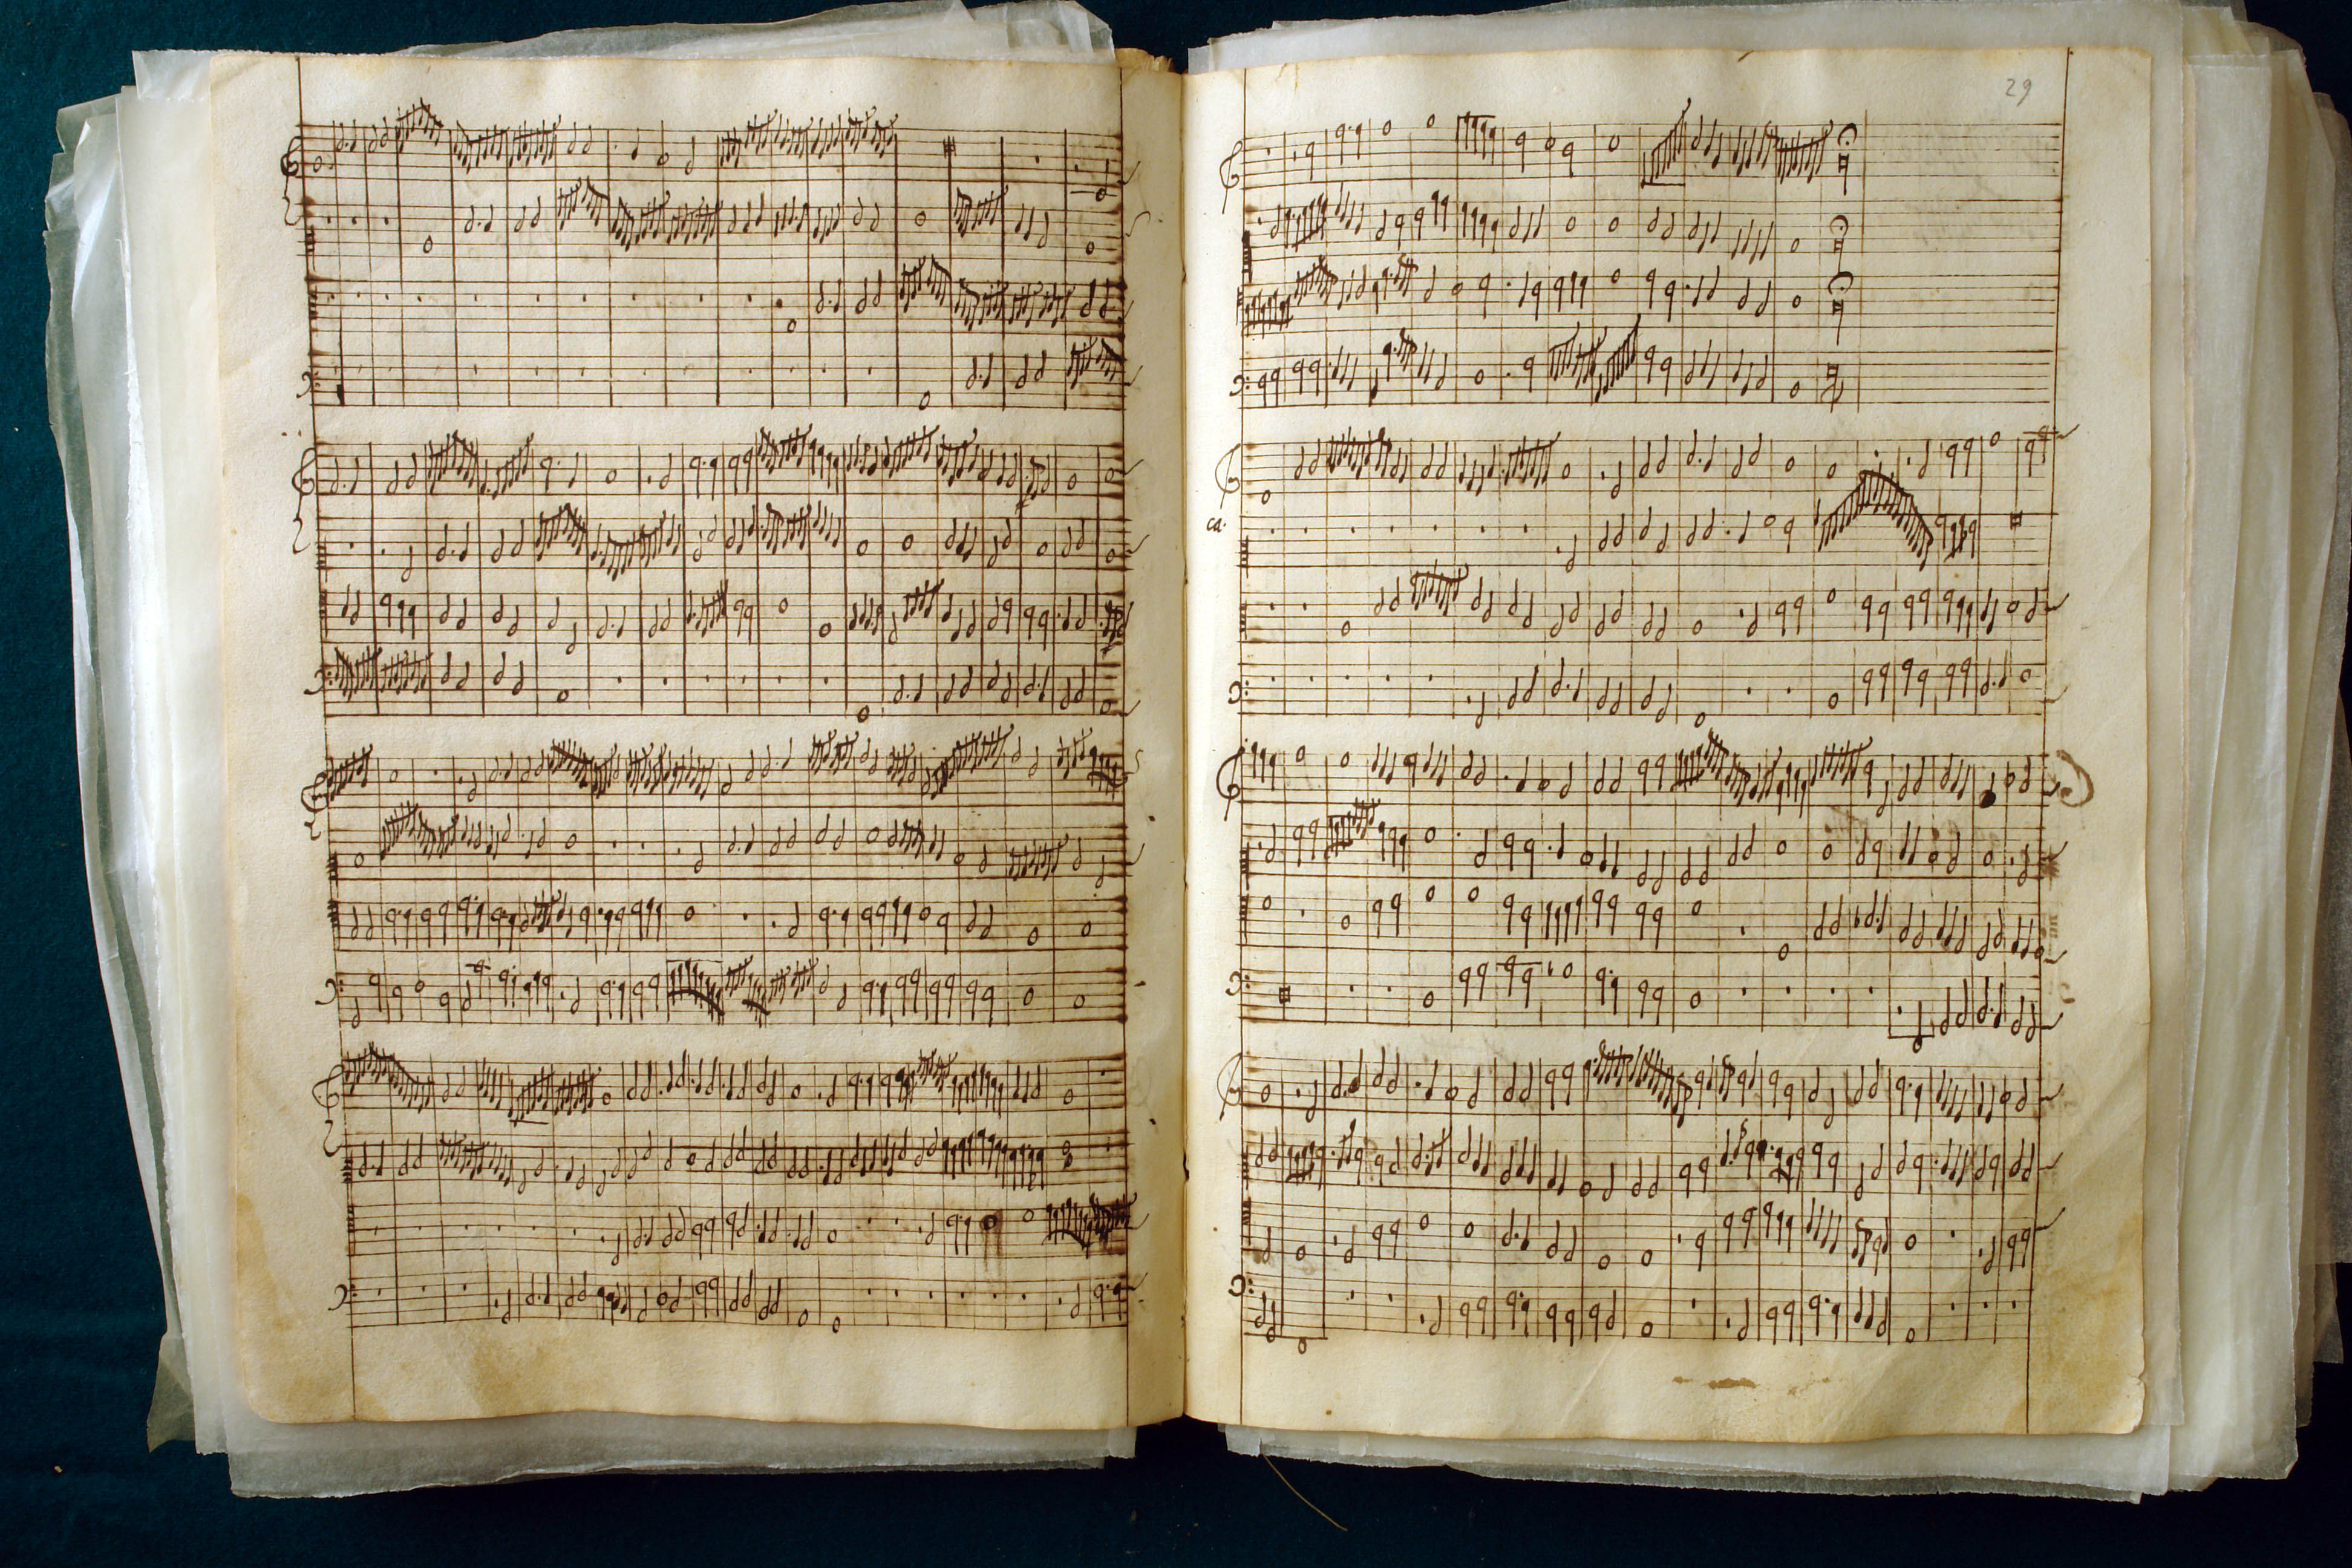 29
ca.